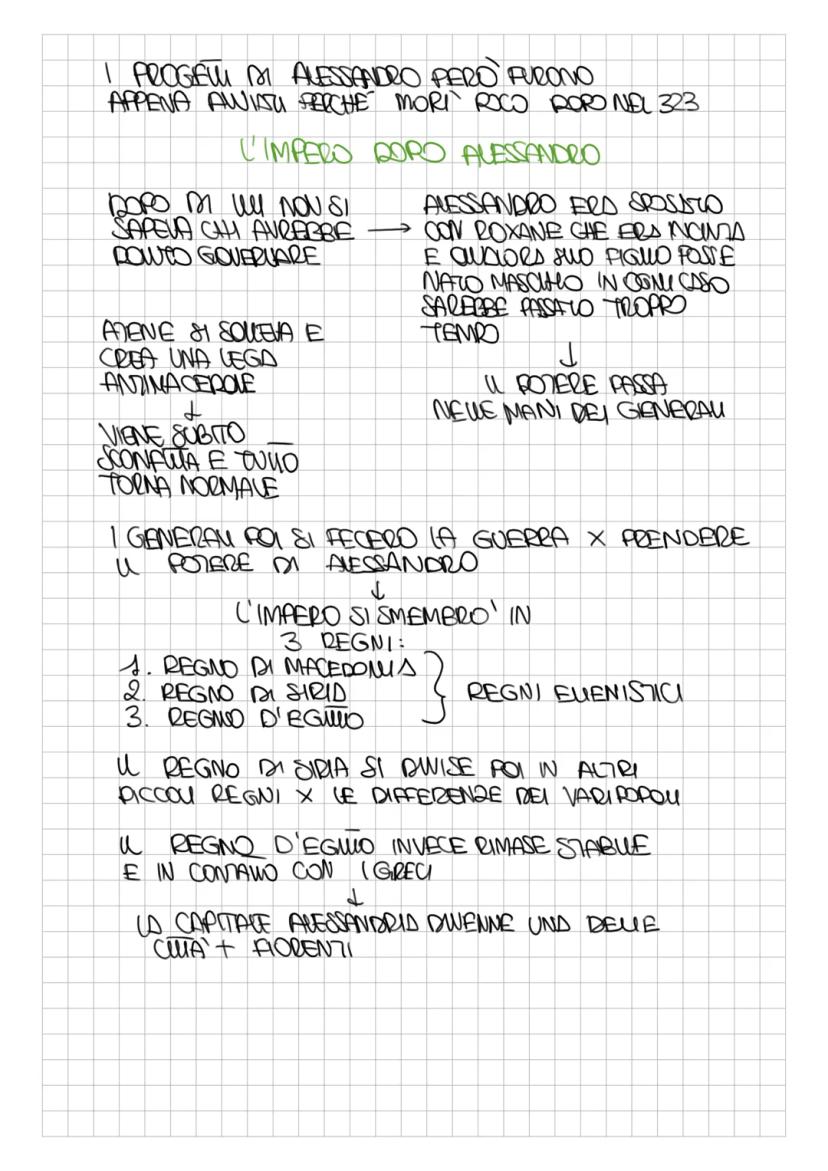 I PROGETTI DI ALESSANDRO PERÒ FURONO
APPENA AVVIATI PERCHÉ MORÌ POCO DOPO NEL 323
L'IMPERO DOPO ALESSANDRO
DOPO DI LUI NON SI
SAPEVA CHI AVREBBE →
DOVUTO GOVERNARE
ALESSANDRO ERA SPOSATO
CON ROXANE CHE ERA INCINTA
E QUALORA SUO FIGLIO FOSSE
NATO MASCHIO IN OGNI CASO
SAREBBE PASSATO TROPPO
TEMPO
↓
IL POTERE PASSA
NELLE MANI DEI GENERALI
ATENE SI SOLLEVA E
CREA UNA LEGA
ANTIMACEDONE
↓
VIENE SUBITO
SCONFITTA E TUTTO
TORNA NORMALE
I GENERALI POI SI FECERO LA GUERRA X PRENDERE
IL POTERE DI ALESSANDRO
↓
L'IMPERO SI SMEMBRÒ IN
3 REGNI:
1. REGNO DI MACEDONIA
2. REGNO DI SIRIA } REGNI ELLENISTICI
3. REGNO D'EGITTO
IL REGNO DI SIRIA SI DIVISE POI IN ALTRI
PICCOLI REGNI X LE DIFFERENZE DEI VARI POPOLI
IL REGNO D'EGITTO INVECE RIMASE STABILE
E IN CONTATTO CON I GRECI
↓
LA CAPITALE ALESSANDRIA DIVENNE UNA DELLE
CITTÀ + FIORENTI